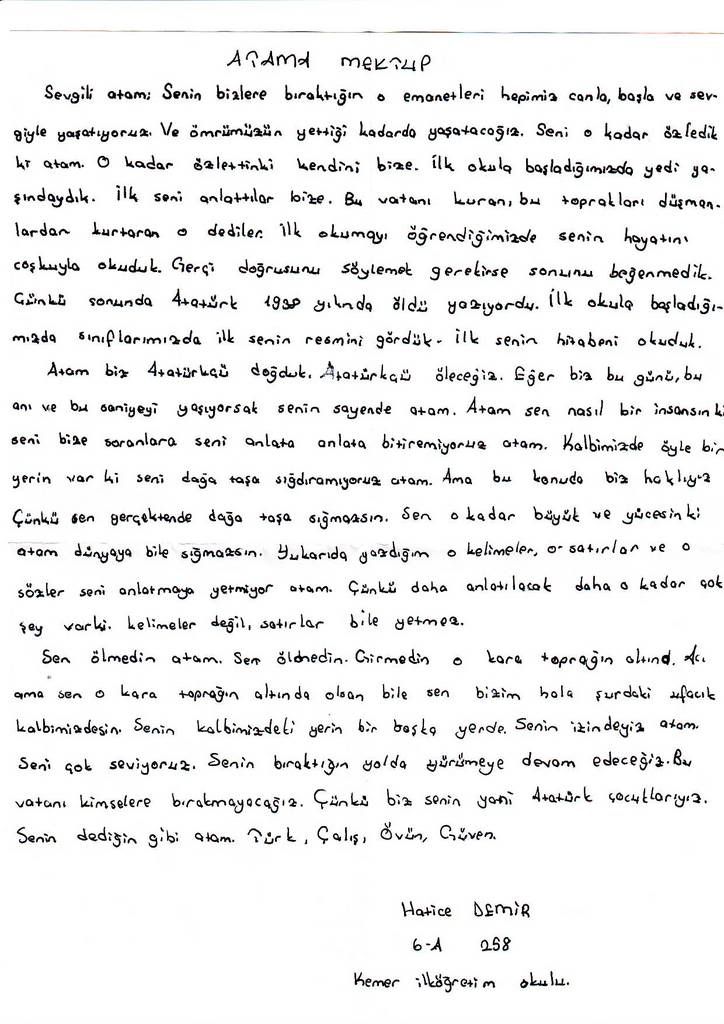 ATAMA MEKTUP
Sevgili atam; Senin bizlere bıraktığın o emanetleri hepimiz canla, başla ve sev-
giyle yaşatıyoruz. Ve ömrümüzün yettiği kadarda yaşatacağız. Seni o kadar özledik
ki atam. O kadar özlettinki kendini bize. İlk okula başladığımızda yedi ya-
şındaydık. İlk seni anlattılar bize. Bu vatanı kuran, bu toprakları düşman-
lardan kurtaran o dediler. İlk okumayı öğrendiğimizde senin hayatını
coşkuyla okuduk. Gerçi doğrusunu söylemek gerekirse sonunu beğenmedik.
Çünkü sonunda Atatürk 1938 yılında öldü yazıyordu. İlk okula başladığı-
mızda sınıflarımızda ilk senin resmini gördük- ilk senin hitabeni okuduk.
Atam biz Atatürkçü doğduk. Atatürkçü öleceğiz. Eğer biz bu günü, bu
anı ve bu saniyeyi yaşıyorsak senin sayende atam. Atam sen nasıl bir insansın ki
seni bize soranlara seni anlata anlata bitiremiyoruz atam. Kalbimizde öyle bir
yerin var ki seni dağa taşa sığdıramıyoruz atam. Ama bu konuda biz haklıyız
Çünkü sen gerçektende dağa taşa sığmazsın. Sen o kadar büyük ve yücesin ki
atam dünyaya bile sığmazsın. Yukarıda yazdığım o kelimeler, o satırlar ve o
sözler seni anlatmaya yetmiyor atam. Çünkü daha anlatılacak daha o kadar çok
şey varki. kelimeler değil, satırlar bile yetmez.
Sen ölmedin atam. Sen ölmedin. Girmedin o kara toprağın altınd. Acı
ama sen o kara toprağın altında olsan bile sen bizim hala şurdaki ufacık
kalbimizdesin. Senin kalbimizdeki yerin bir başka yerde. Senin izindeyiz atam.
Seni çok seviyoruz. Senin bıraktığın yolda yürümeye devam edeceğiz. Bu
vatanı kimselere bırakmayacağız. Çünkü biz senin yani Atatürk çocuklarıyız.
Senin dediğin gibi atam. Türk, Çalış, Övün, Güven.
Hatice DEMİR
6-A 258
Kemer ilköğretim okulu.